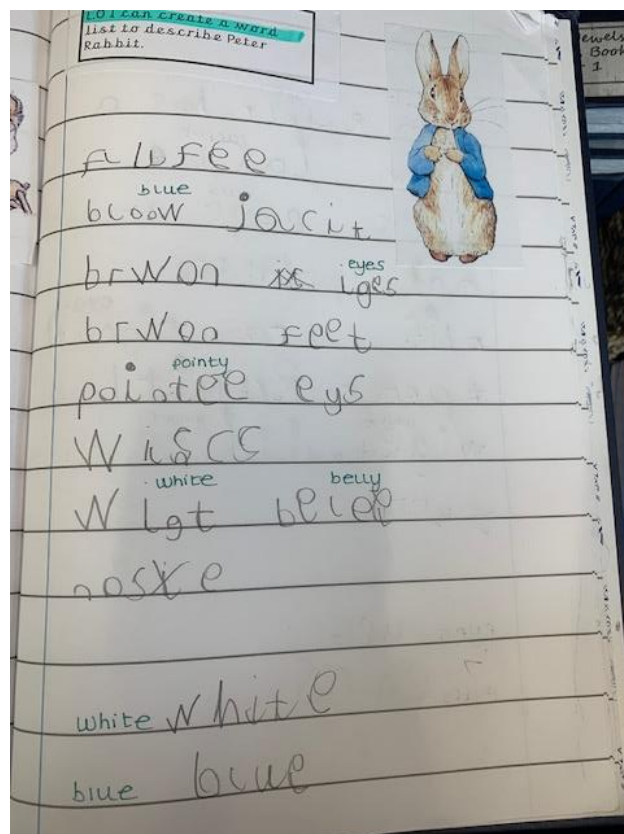 LO I can create a word
list to describe Peter
Rabbit.
ewels
Book
1
flufee
blue
bloow jacit
eyes
brwon iges
brwon feet
pointy
pointee eys
Wiscs
white belly
Wigt belee
nose
white white
blue blue